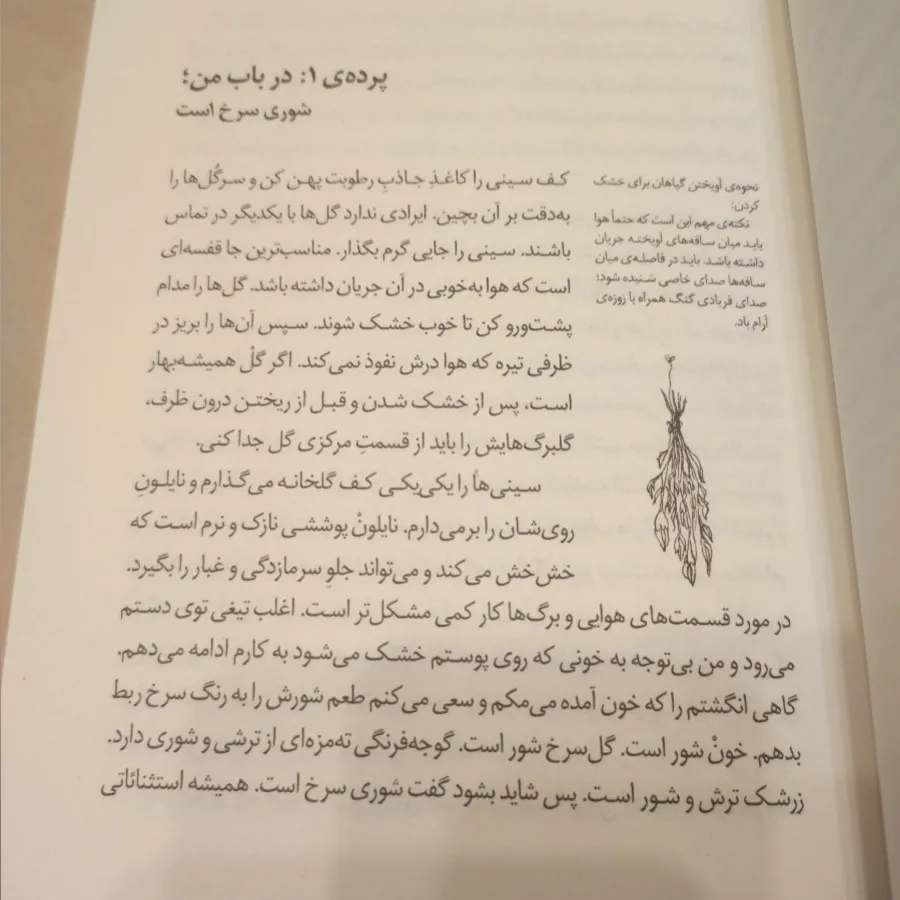 پرده‌ی ۱: در باب من؛
شوری سرخ است
نحوه‌ی آویختن گیاهان برای خشک
کردن:
نکته‌ی مهم این است که حتماً هوا
باید میان ساقه‌های آویخته جریان
داشته باشد. باید در فاصله‌ی میان
ساقه‌ها صدای خاصی شنیده شود؛
صدای فریادی گنگ همراه با زوزه‌ی
آرام باد.
کف سینی را کاغذِ جاذبِ رطوبت پهن کن و سرگُل‌ها را
به‌دقت بر آن بچین. ایرادی ندارد گل‌ها با یکدیگر در تماس
باشند. سینی را جایی گرم بگذار. مناسب‌ترین جا قفسه‌ای
است که هوا به‌خوبی در آن جریان داشته باشد. گل‌ها را مدام
پشت‌ورو کن تا خوب خشک شوند. سپس آن‌ها را بریز در
ظرفی تیره که هوا درش نفوذ نمی‌کند. اگر گلْ همیشه‌بهار
است، پس از خشک شدن و قبل از ریختن درون ظرف،
گلبرگ‌هایش را باید از قسمتِ مرکزی گل جدا کنی.
سینی‌ها را یکی‌یکی کف گلخانه می‌گذارم و نایلونِ
روی‌شان را برمی‌دارم. نایلونْ پوششی نازک و نرم است که
خش‌خش می‌کند و می‌تواند جلوِ سرمازدگی و غبار را بگیرد.
در مورد قسمت‌های هوایی و برگ‌ها کار کمی مشکل‌تر است. اغلب تیغی توی دستم
می‌رود و من بی‌توجه به خونی که روی پوستم خشک می‌شود به کارم ادامه می‌دهم.
گاهی انگشتم را که خون آمده می‌مکم و سعی می‌کنم طعم شورش را به رنگ سرخ ربط
بدهم. خونْ شور است. گل‌سرخ شور است. گوجه‌فرنگی ته‌مزه‌ای از ترشی و شوری دارد.
زرشک ترش و شور است. پس شاید بشود گفت شوری سرخ است. همیشه استثنائاتی